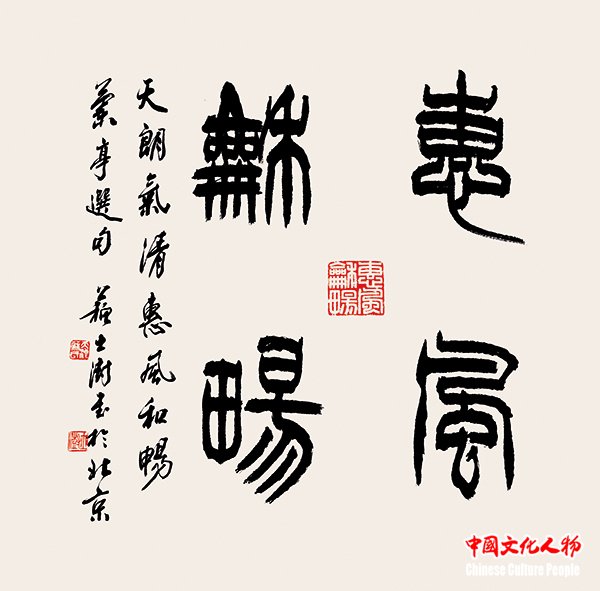 惠風
龢暢
天朗氣清惠風和暢
蘭亭選句 蘇士澍書於北京
惠風龢暢
中國文化人物
Chinese Culture People